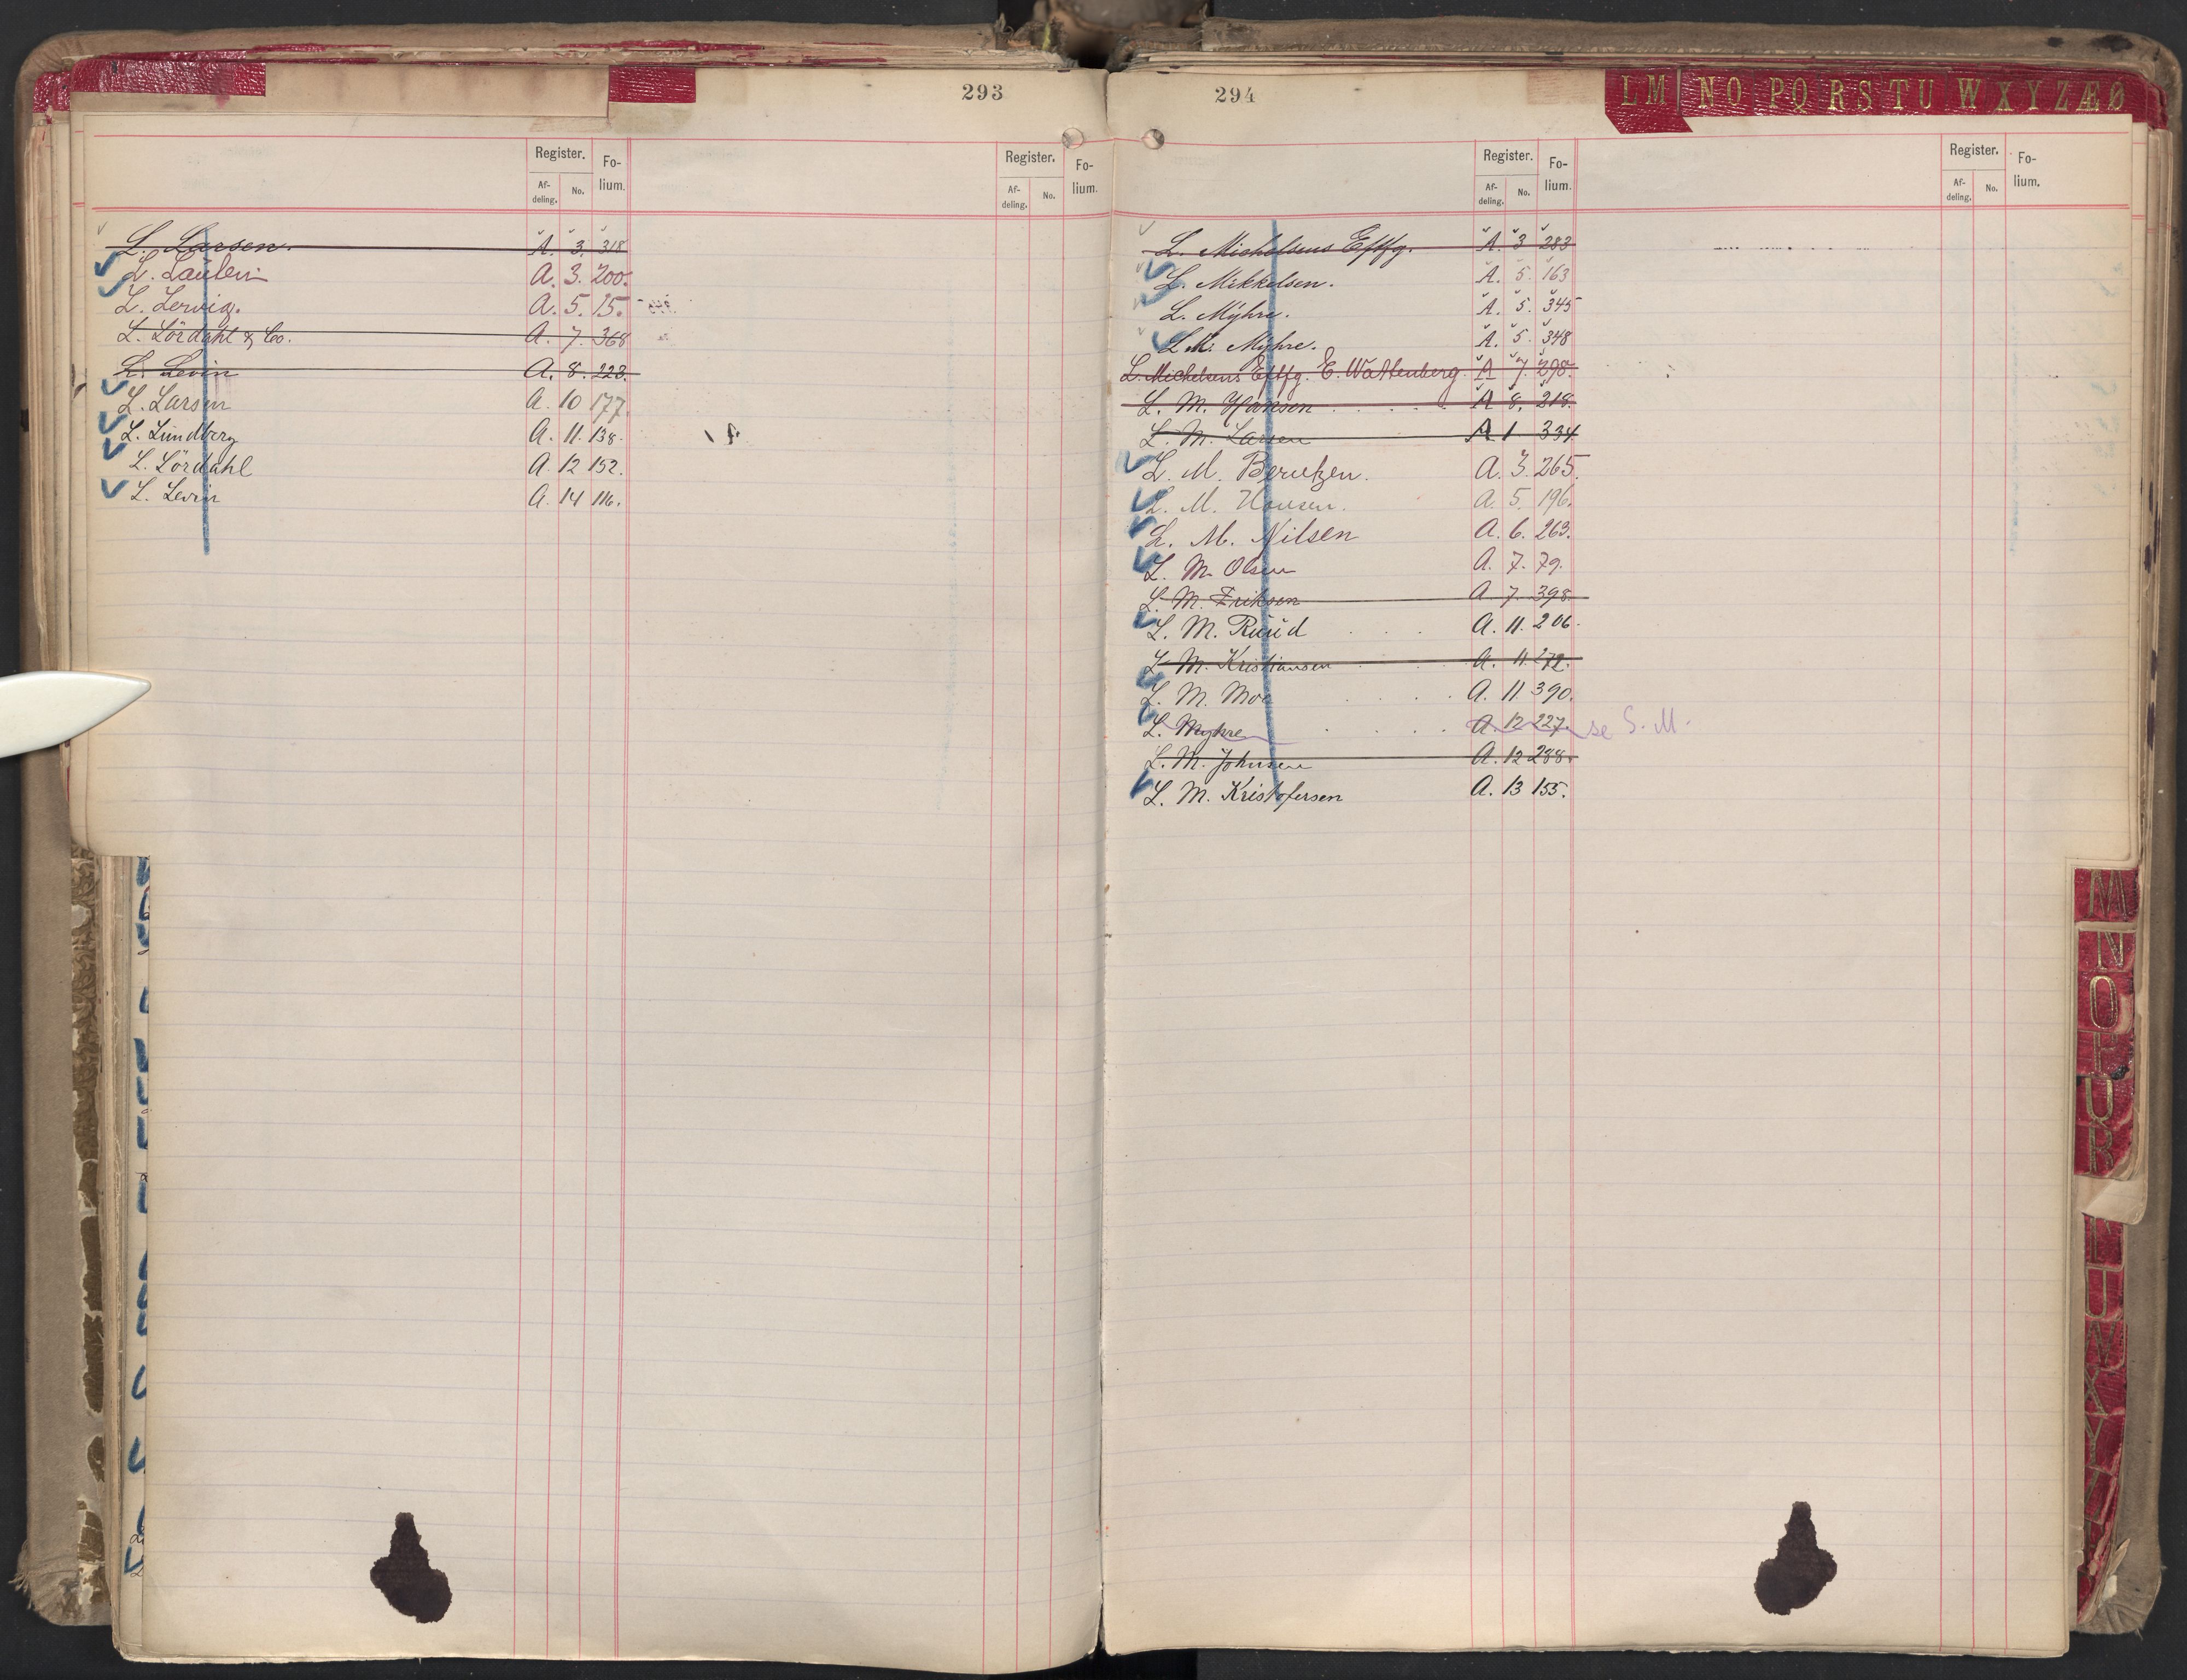 293
Register. Fo-
Af- No. lium.
deling.
Register. Fo-
Af- No. lium.
deling.
L. Larsen. A. 3. 318
L. Laulen A. 3. 200.
L. Lervig. A. 5. 15.
L. Lördahl & Co. A. 7. 368
L. Levin A. 8. 223.
L. Larsen A. 10 177.
L. Lundberg A. 11. 138.
L. Lördahl A. 12 152.
L. Levin A. 14 116.
294
L M N O P Q R S T U W X Y Z Æ Ø
Register. Fo-
Af- No. lium.
deling.
Register. Fo-
Af- No. lium.
deling.
L. Michelsens Eftfg. A. 3 283
L. Mikkelsen. A. 5. 163
L. Myhre. A. 5. 345
L. M. Myhre. A. 5. 348
L. Michelsens Eftfg. E. Wattenberg. A 7 298.
L. M. Hansen A 8. 218.
L. M. Larsen A 1 334
L. M. Berntzen. A. 3. 265.
L. M. Hansen. A. 5. 196.
L. M. Nilsen A. 6. 263.
L. M. Olsen A. 7. 79.
L. M. Eriksen A 7. 398.
L. M. Ruud A. 11. 206.
L. M. Kristiansen A. 11. 272.
L. M. Moe A. 11 390.
L. Myhre A. 12 227. se S. M.
L. M. Johnsen A. 12 288.
L. M. Kristofersen A. 13 155.
M
N
O
P
U
R
U
W
X
Y